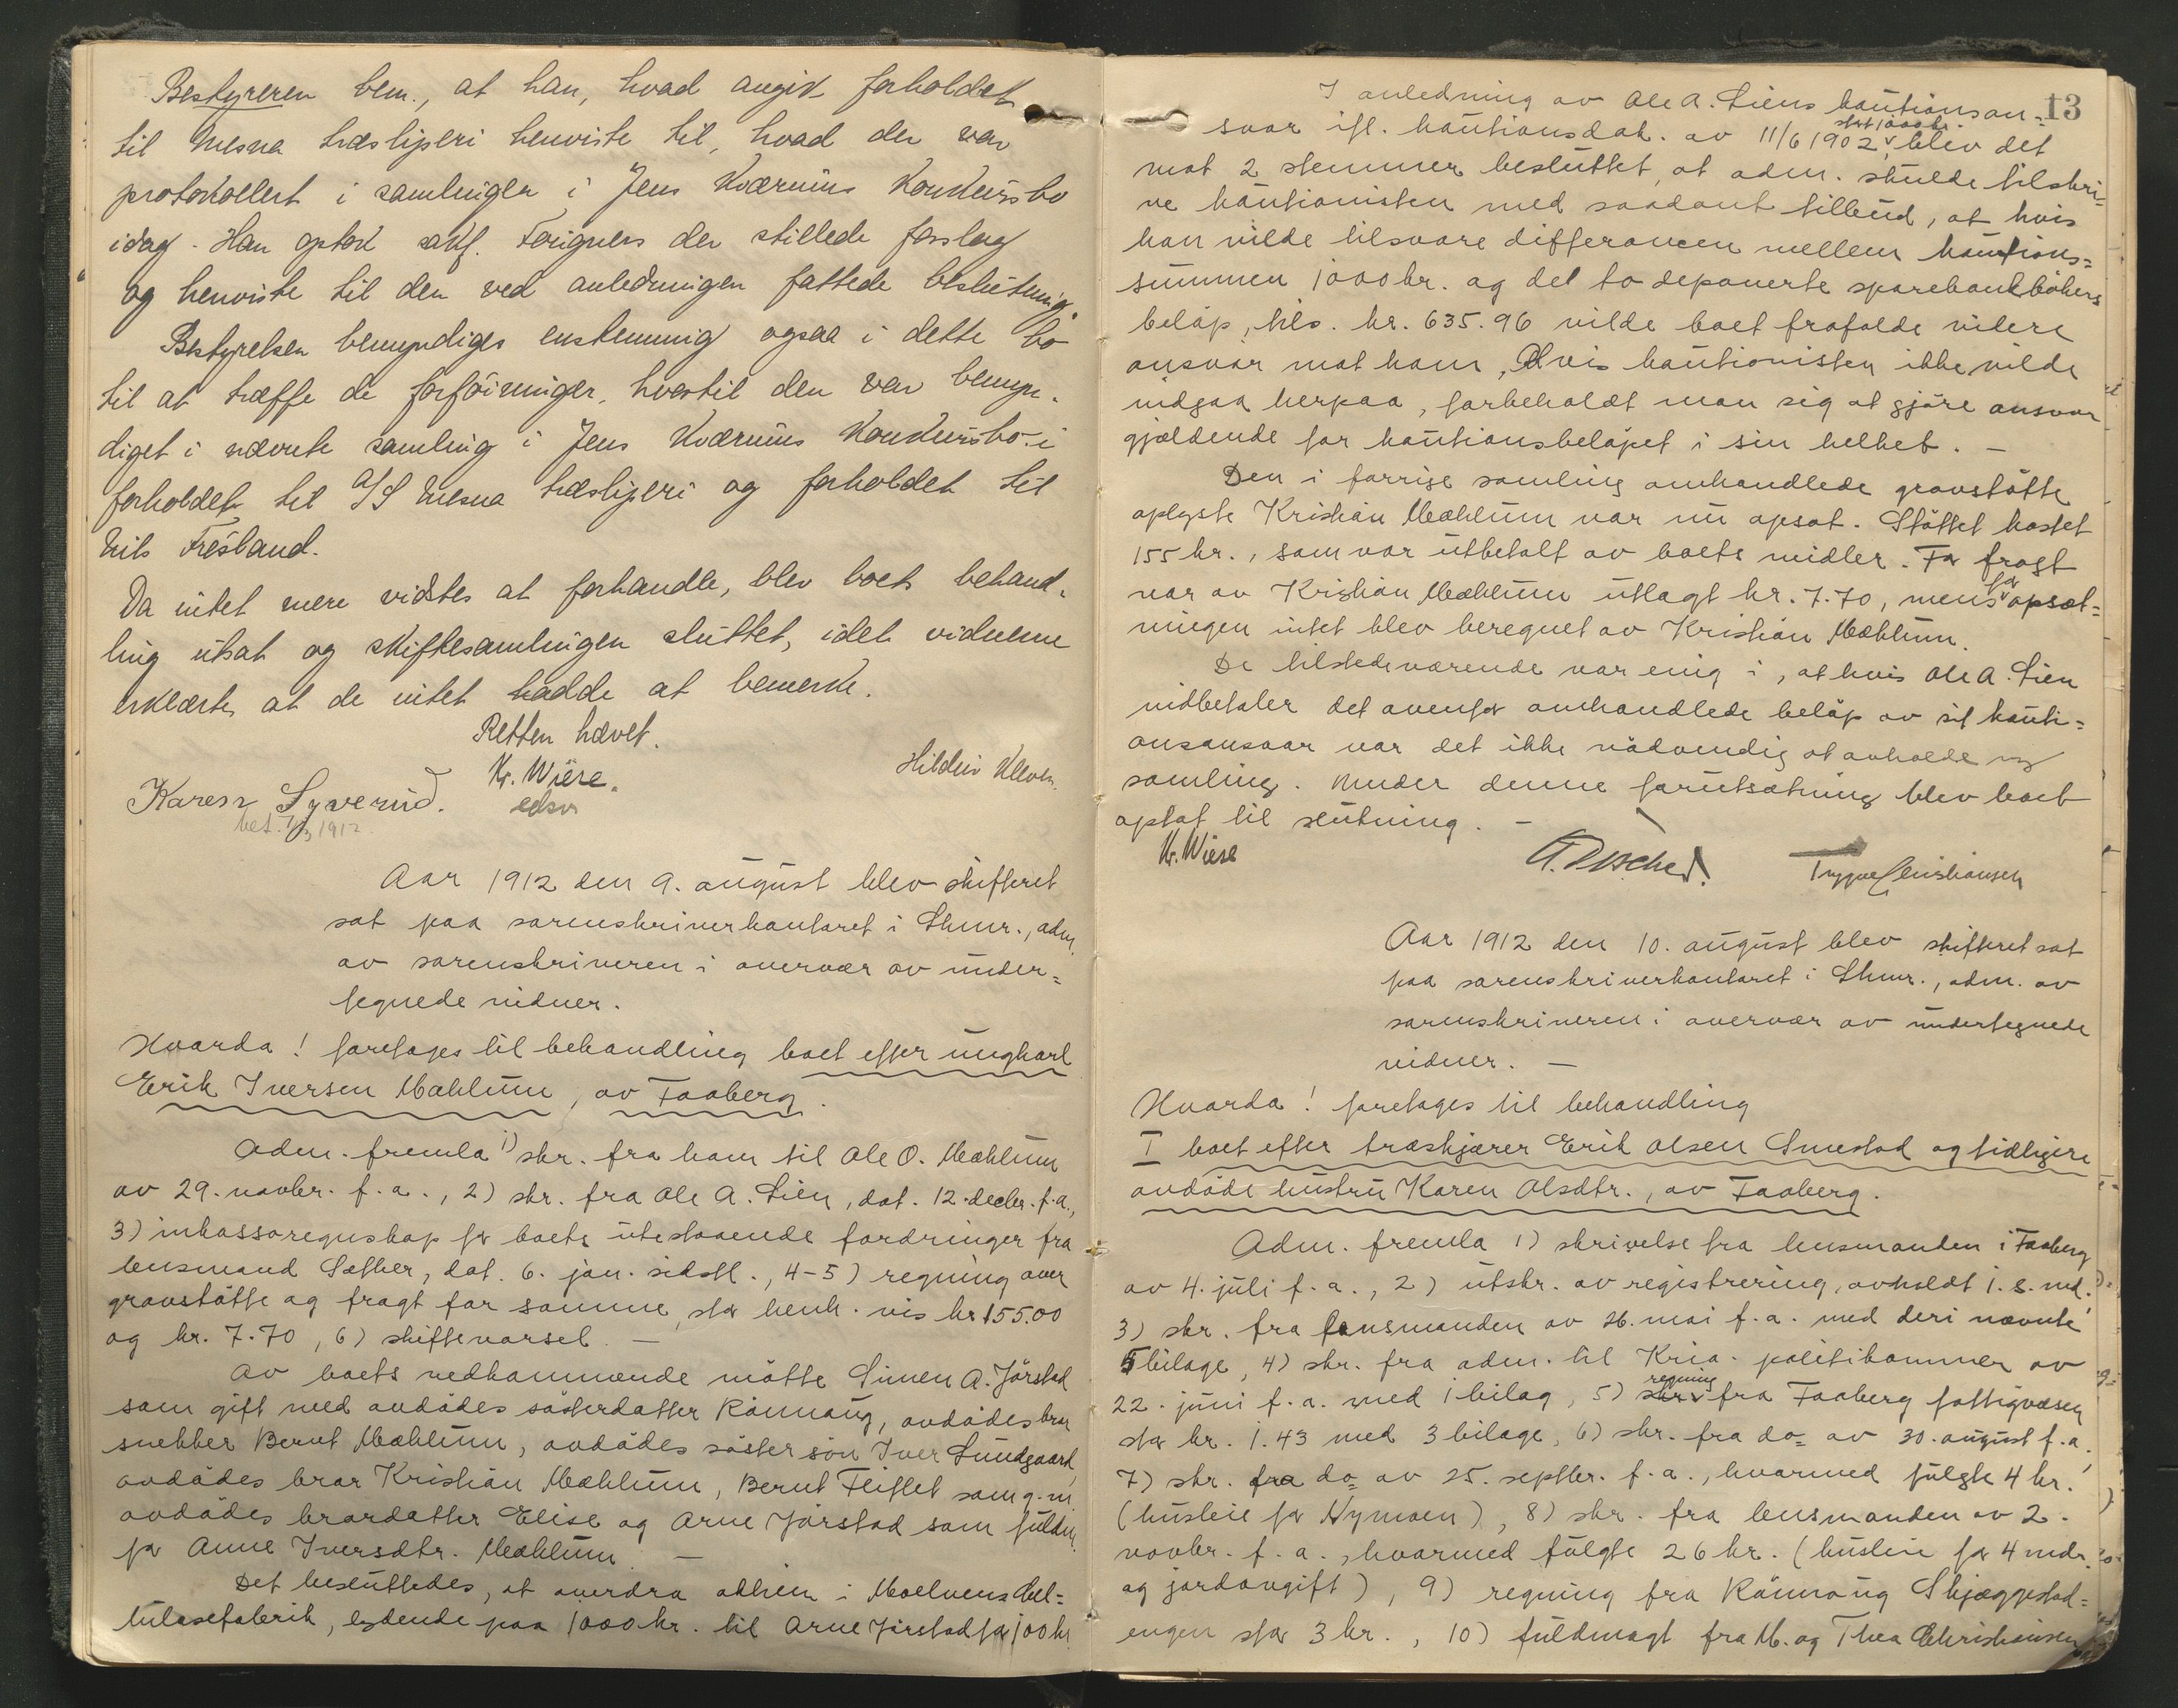 Bestyreren bem., at han, hvad angik forholdet
til Mesna træsliperi henviste til, hvad der var
protokollert i samlingen i Jens Kværnins Konkursbo
idag. Han optok sakf. Forigners der stillede forslag
og henviste til den ved anledningen fattede beslutning.
Bestyrelsen bemyndiges enstemmig ogsaa i dette bo
til at træffe de forföininger, hvortil den var bemyn-
diget i nævnte samling i Jens Kværnins Konkursbo i
forholdet til A/S Mesna træsliperi og forholdet til
Nils Frösland.
Da intet mere vidstes at forhandle, blev boets behand-
ling utsat og skiftesamlingen sluttet, idet vidnerne
erklærte, at de intet hadde at bemerke.
Retten hævet.
Kr. Wiese. Hildur Kleven
Karen Syverud. edsv
bet. 1/3 1912
Aar 1912 den 9. august blev skifteret
sat paa sorenskriverkontoret i Lhmr., adm.
av sorenskriveren i overvær av under=
tegnede vidner.
Hvorda! foretages til behandling boet efter ungkarl
Erik Iversen Mæhlum, av Faaberg.
Adm. fremla 1) skr. fra ham til Ole O. Mæhlum
av 29. novbr. f.a., 2) skr. fra Ole A. Lien, dat. 12. decbr. f.a.,
3) inkassoregnskap for boets utestaaende fordringer fra
lensmand Sæther, dat. 6. jan. sidstl., 4-5) regning over
gravstøtte og fragt for samme, stor henh. vis kr 155.00
og kr. 7.70, 6) skiftevarsel. —
Av boets vedkommende møtte Simen A. Jørstad
som gift med avdødes søsterdatter Rönnaug, avdødes bror
snekker Bernt Mæhlum, avdødes søstersøn Iver Sundgaard,
avdødes bror Kristian Mæhlum, Bernt Fliflet som g. m.
avdødes brordatter Elise og Arne Jørstad som fuldm.
for Anne Iversdtr. Mæhlum. —
Det besluttedes, at overdra aktien i Moelvens Cel=
lulosefabrik, lydende paa 1000 kr. til Arne Jørstad for 100 kr.
13
I anledning av Ole A. Liens kautionsan=
svar ifl. kautionsdok. av 11/6 1902 stort 1000 kr. blev det
mot 2 stemmer besluttet, at adm. skulde tilskri=
ve kautionisten med saadant tilbud, at hvis
han vilde tilsvare differancen mellem kautions=
summen 1000 kr. og det to deponerte sparebankbøkers
beløp, tils. kr. 635.96 vilde boet frafalde videre
ansvar mot ham, Hvis kautionisten ikke vilde
indgaa herpaa, forbeholdt man sig at gjøre ansvar
gjældende for kautionsbeløpet i sin helhet. —
Den i forrige samling omhandlede gravstøtte
oplyste Kristian Mæhlum var nu opsat. Støttet kostet
155 kr., som var utbetalt av boets midler. For fragt
var av Kristian Mæhlum utlagt kr. 7.70, mens for opsæt=
ningen intet blev beregnet av Kristian Mæhlum.
De tilstedeværende var enig i, at hvis Ole A. Lien
indbetaler det ovenfor omhandlede beløp av sit kauti=
onsansvar var det ikke nødvendig at avholde ny
samling. Under denne forutsætning blev boet
optat til slutning. —
Kr. Wiese Trygve Christiansen
Aar 1912 den 10. august blev skifteret sat
paa sorenskriverkontoret i Lhmr., adm. av
sorenskriveren i overvær av undertegnede
vidner. —
Hvorda! foretages til behandling
I boet efter træskjærer Erik Olsen Smestad og tidligere
avdøde hustru Karen Olsdtr., av Faaberg.
Adm. fremla 1) skrivelse fra lensmanden i Faaberg
av 4. juli f.a., 2) utskr. av registrering, avholdt i. s. md.
3) skr. fra lensmanden av 26. mai f.a. med deri nævnte
5 bilage, 4) skr. fra adm. til Kria. politikammer av
22. juni f.a. med 1 bilag, 5) regning fra Faaberg fattigvæsen
stor kr. 1.43 med 3 bilage, 6) skr. fra do= av 30. august f.a.
7) skr. fra do= av 25. septbr. f.a., hvormed fulgte 4 kr.
(husleie for Nymoen), 8) skr. fra lensmanden av 2.
novbr. f.a., hvormed fulgte 26 kr. (husleie for 4 mdr.
og jordavgift), 9) regning fra Rönnaug Skjæggestad=
engen stor 3 kr., 10) fuldmagt fra M. og Thea Christiansen